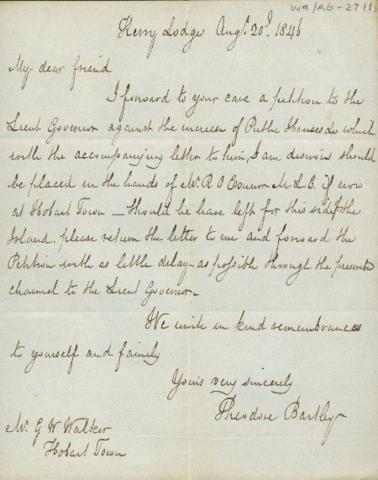 W9/AG-27(1)
Kerry Lodge Augt. 20th. 1846
My dear friend
I forward to your care a petition to the
Lieut Governor against the increase of Public Houses &c which
with the accompanying letter to him, I am desirous should
be placed in the hands of Mr. R O Connor M.L.C. if now
at Hobart Town — Should he have left for this side of the
Island. please return the letter to me and forward the
Petition with as little delay as possible through the present
channel to the Lieut Governor —
We unite in kind remembrances
to yourself and family
Yours very sincerely
Theodore Bartley
Mr. G W Walker
Hobart Town